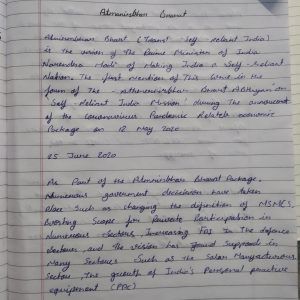 Atmanirbhar Bharat
Atmanirbhar Bharat (Transl Self Reliant India)
is the vision of the Prime Minister of India
Narendra Modi of Making India a Self Reliant
Nation. The first mention of This came in the
form of The Atmanirbhar Bharat Abhiyan or
Self-Reliant India Mission during The announcement
of the coronavirus Pandemic Related economic
Package on 12 May 2020
25 June 2020
As Part of the Atmanirbhar Bharat Package,
Numerous government decisions have taken
Place Such as changing the definition of MSMES,
Boosting Scope for Private Participation in
Numerous Sectors, Increasing FDI In The defence
Sector, and The vision has found Support in
Many Sectors Such as the Solar Manufacturers
Sector, The growth of India's Personal protective
equipment (PPE)